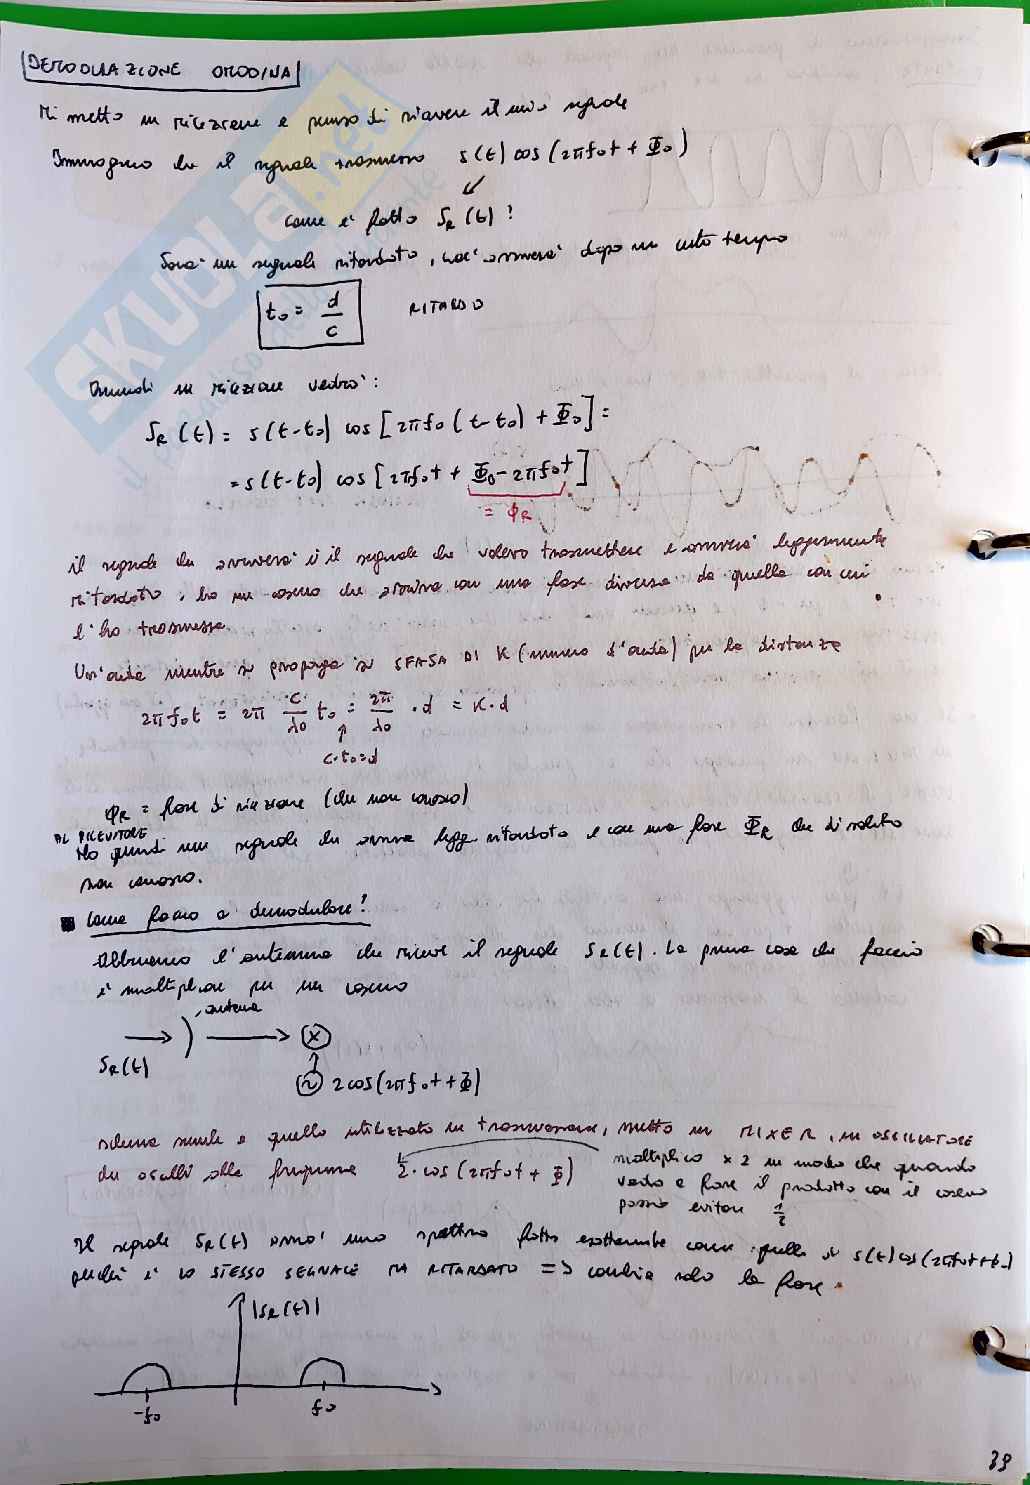 DEMODULAZIONE OMODINA
Mi metto in ricezione e penso di riavere il mio segnale
Immagino che il segnale trasmesso s(t) cos (2πf₀t + Φ₀)
↙
come è fatto S_R(t)?
Sarà un segnale ritardato, cioè arriverà dopo un certo tempo
t₀ = d/c RITARDO
Quindi in ricezione vedrò:
S_R(t) = s(t-t₀) cos [2πf₀(t-t₀) + Φ₀] =
= s(t-t₀) cos [2πf₀t + Φ₀ - 2πf₀t]
= φ_R
il segnale che arriverà è il segnale che volevo trasmettere e arriverà leggermente
ritardato, ho un coseno che arriva con una fase diversa da quella con cui
l'ho trasmesse.
Un'onda mentre si propaga si SFASA DI K (numero d'onda) per la distanza
2πf₀t = 2π c/λ₀ t₀ = 2π/λ₀ · d = K·d
↑
c·t₀=d
φ_R = fase di ricezione (che non conosco)
AL RICEVITORE
Ho quindi un segnale che arriva legg. ritardato e con una fase Φ_R che di solito
non conosco.
■ Come faccio a demodulare?
Abbiamo l'antenna che riceve il segnale S_R(t). La prima cosa che faccio
è moltiplicare per un coseno
antenna
S_R(t)
× ~ 2cos(2πf₀t + Φ)
schema simile a quello utilizzato in trasmissione, metto un MIXER, un OSCILLATORE
che oscilli alla frequenza 2·cos(2πf₀t + Φ)
moltiplico ×2 in modo che quando
vado a fare il prodotto con il coseno
posso evitare 1/2
Il segnale S_R(t) avrà uno spettro fatto esattamente come quello di s(t)cos(2πf₀t+φ₀)
perché è LO STESSO SEGNALE MA RITARDATO => cambia solo la fase.
|S_R(t)|
-f₀ f₀
39
SKUOLA.net
il paradiso dello studente